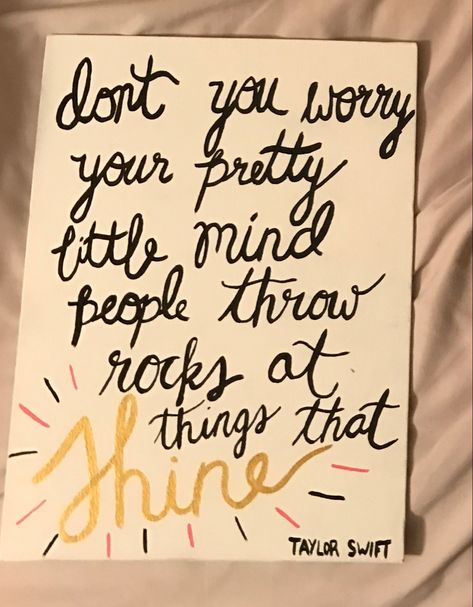 dont you worry
your pretty
little mind
people throw
rocks at
things that
shine
TAYLOR SWIFT